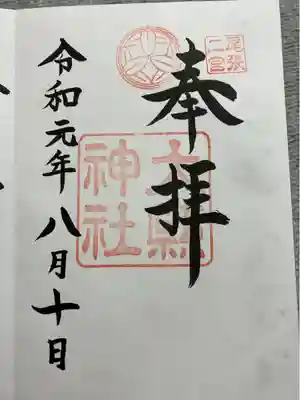 尾張
二宮
奉拝
大縣
神社
令和元年八月十日